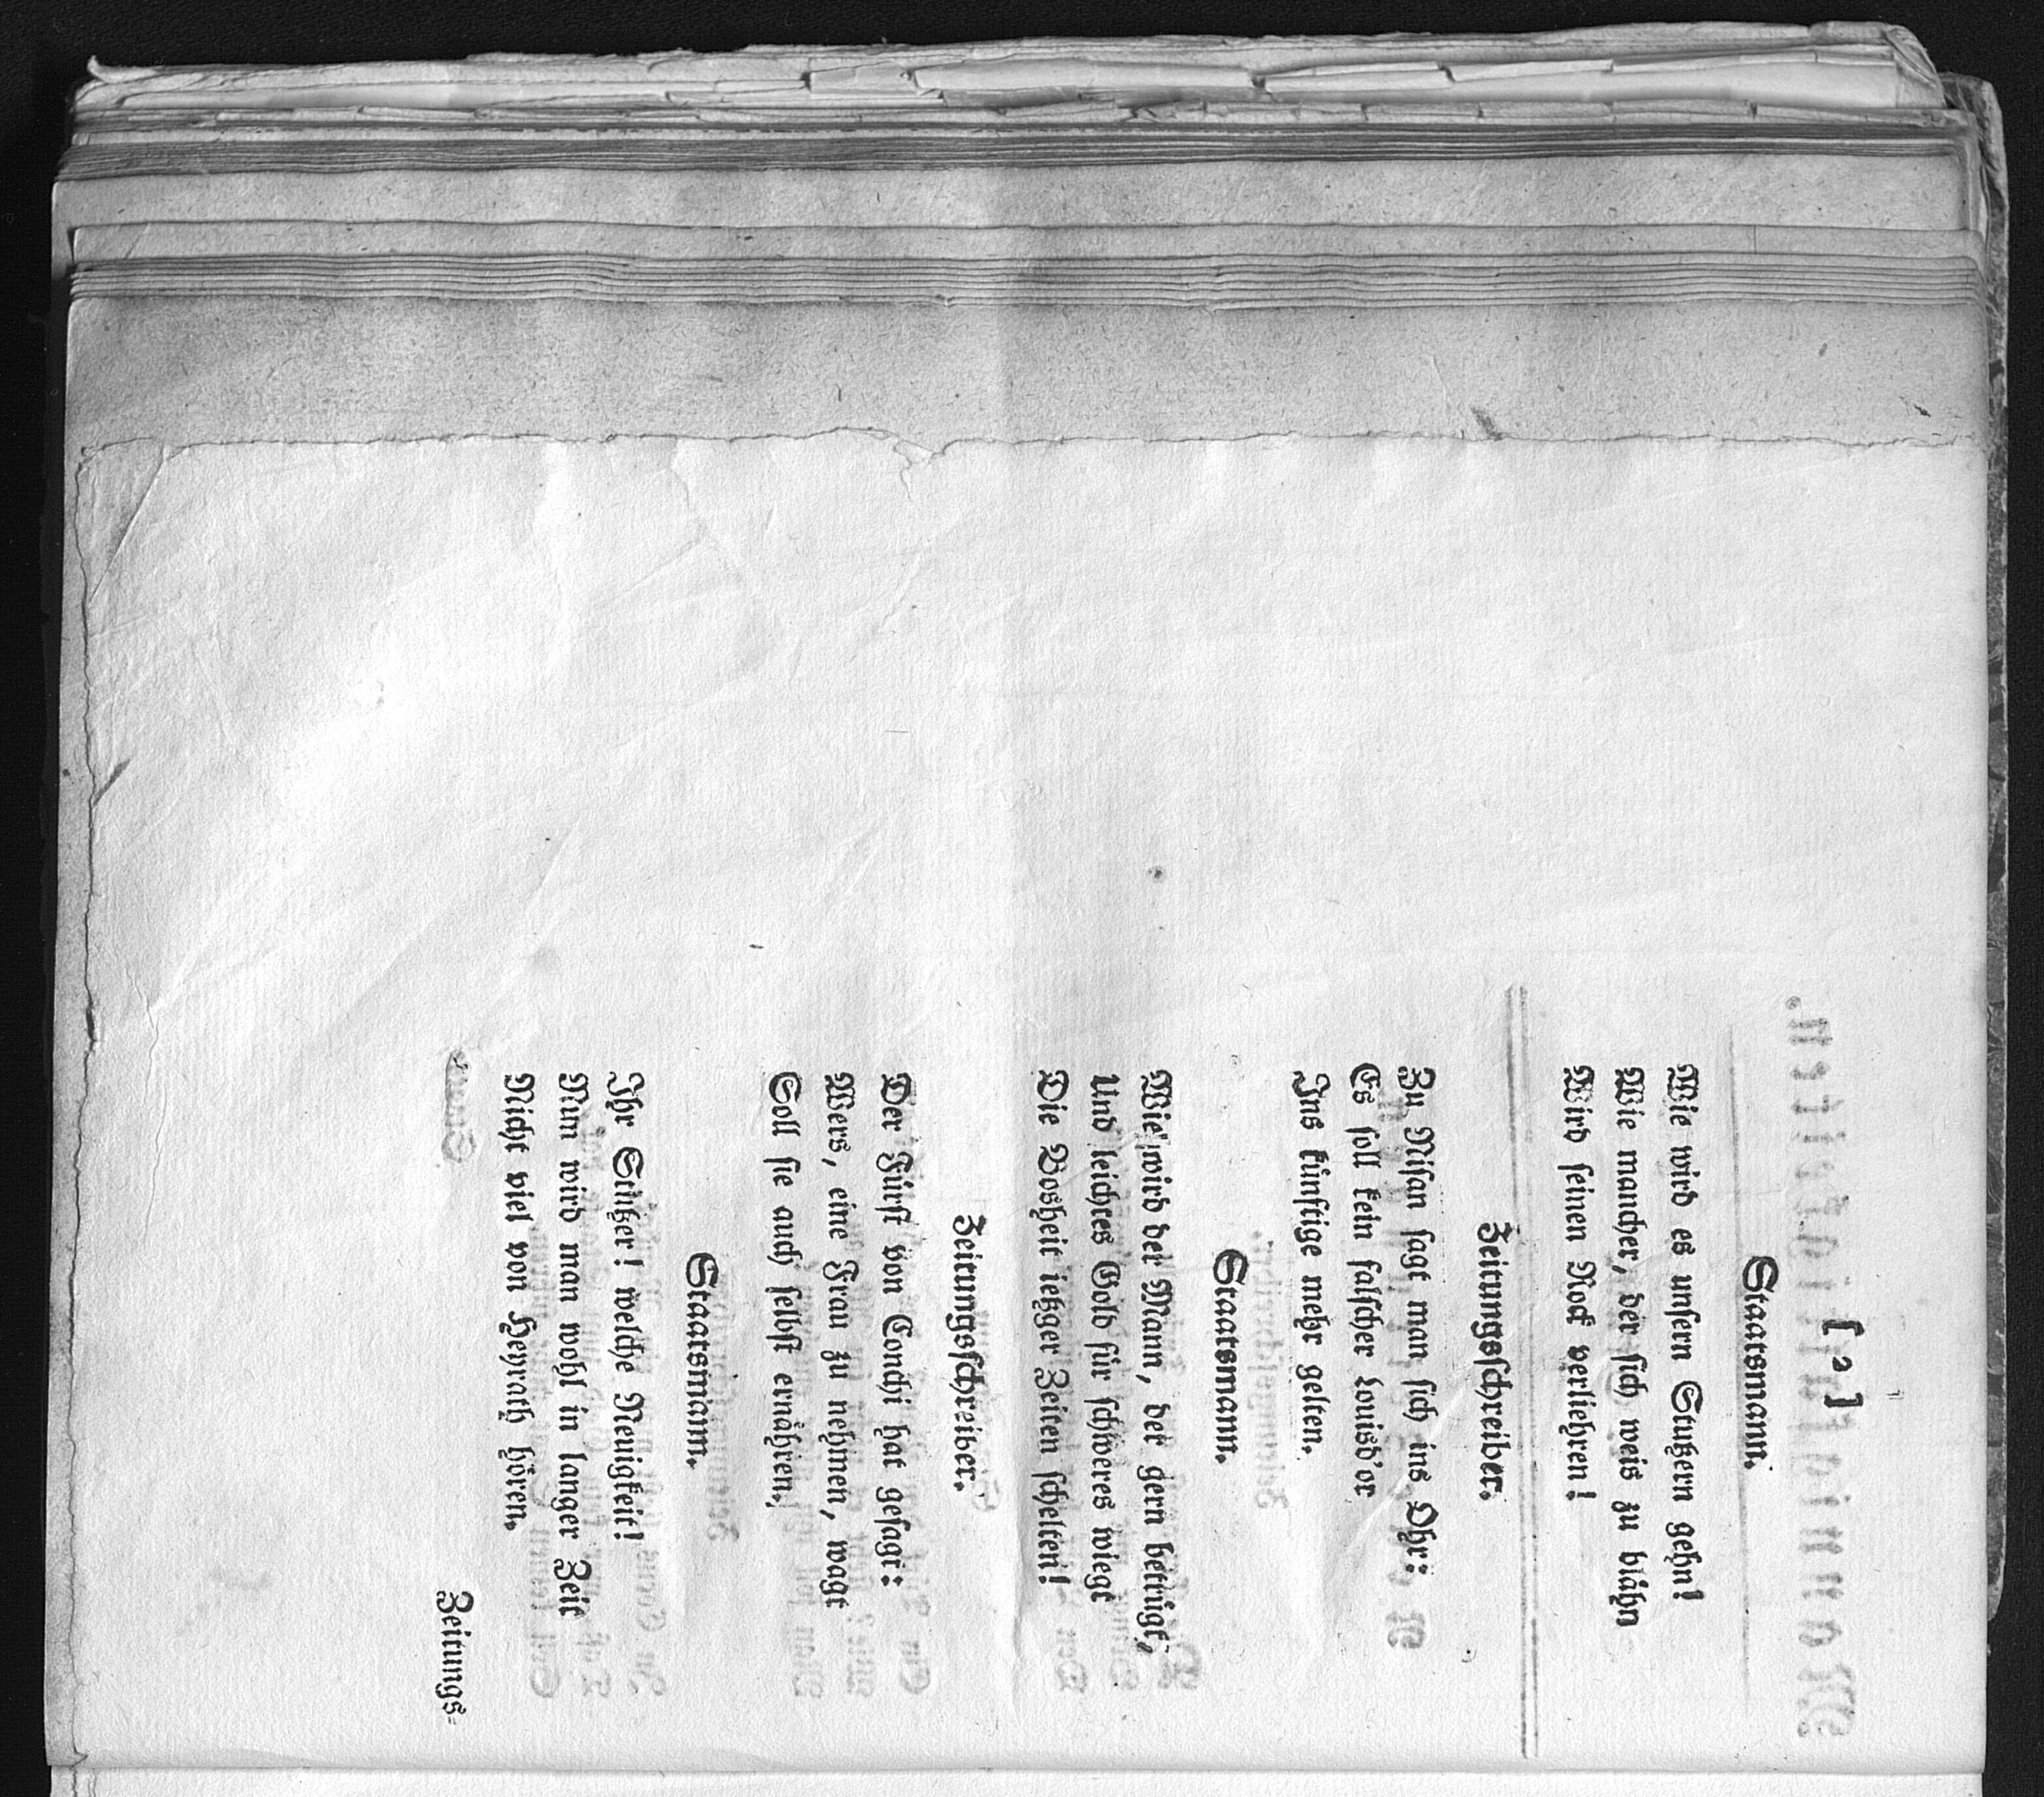 [ 2 ]
Staatsmann.
Wie wird es unsern Stutzern gehn!
Wie mancher, der sich weis zu blähn
Wird seinen Rock verliehren!
Zeitungsschreiber.
Zu Nisan sagt man sich ins Ohr:
Es soll kein falscher Louisd'or
Ins künftige mehr gelten.
Staatsmann.
Wie wird der Mann, der gern betrügt,
Und leichtes Gold für schweres wiegt
Die Bosheit ietzger Zeiten schelten!
Zeitungsschreiber.
Der Fürst von Conchi hat gesagt:
Wers, eine Frau zu nehmen, wagt
Soll sie auch selbst ernähren.
Staatsmann.
Ihr Stutzer! welche Neuigkeit!
Nun wird man wohl in langer Zeit
Nicht viel von Heyrath hören.
Zeitungs-